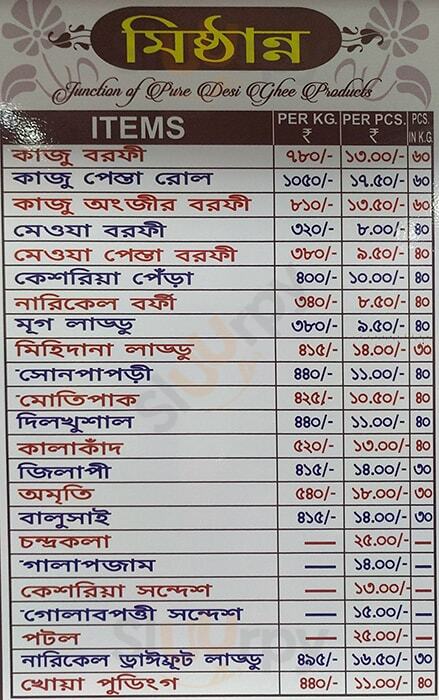 মিষ্ঠান্ন
Junction of Pure Desi Ghee Products
ITEMS PER KG. ₹ PER PCS. ₹ PCS. IN K.G.
কাজু বরফী ৭৮০/- ১৩.০০/- ৬০
কাজু পেস্তা রোল ১০৫০/- ১৭.৫০/- ৬০
কাজু অংজীর বরফী ৮১০/- ১৩.৫০/- ৬০
মেওযা বরফী ৩২০/- ৮.০০/- ৪০
মেওযা পেস্তা বরফী ৩৮০/- ৯.৫০/- ৪০
কেশরিয়া পেঁড়া ৪০০/- ১০.০০/- ৪০
নারিকেল বর্ফী ৩৪০/- ৮.৫০/- ৪০
মূগ লাড্ডু ৩৮০/- ৯.৫০/- ৪০
মিহিদানা লাড্ডু ৪১৫/- ১৪.০০/- ৩০
সোনপাপড়ী ৪৪০/- ১১.০০/- ৪০
মোতিপাক ৪২৫/- ১০.৫০/- ৪০
দিলখুশাল ৪৪০/- ১১.০০/- ৪০
কালাকাঁদ ৫২০/- ১৩.০০/- ৪০
জিলাপী ৪১৫/- ১৪.০০/- ৩০
অমৃতি ৫৪০/- ১৮.০০/- ৩০
বালুসাই ৪১৫/- ১৪.০০/- ৩০
চন্দ্রকলা — ২৫.০০/- —
গালাপজাম — ১৪.০০/- —
কেশরিয়া সন্দেশ — ১৩.০০/- —
গোলাবপত্তী সন্দেশ — ১৫.০০/- —
পটল — ২৫.০০/- —
নারিকেল ড্রাইফ্রুট লাড্ডু ৪৯৫/- ১৬.৫০/- ৩০
খোয়া পুডিংগ ৪৪০/- ১১.০০/- ৪০